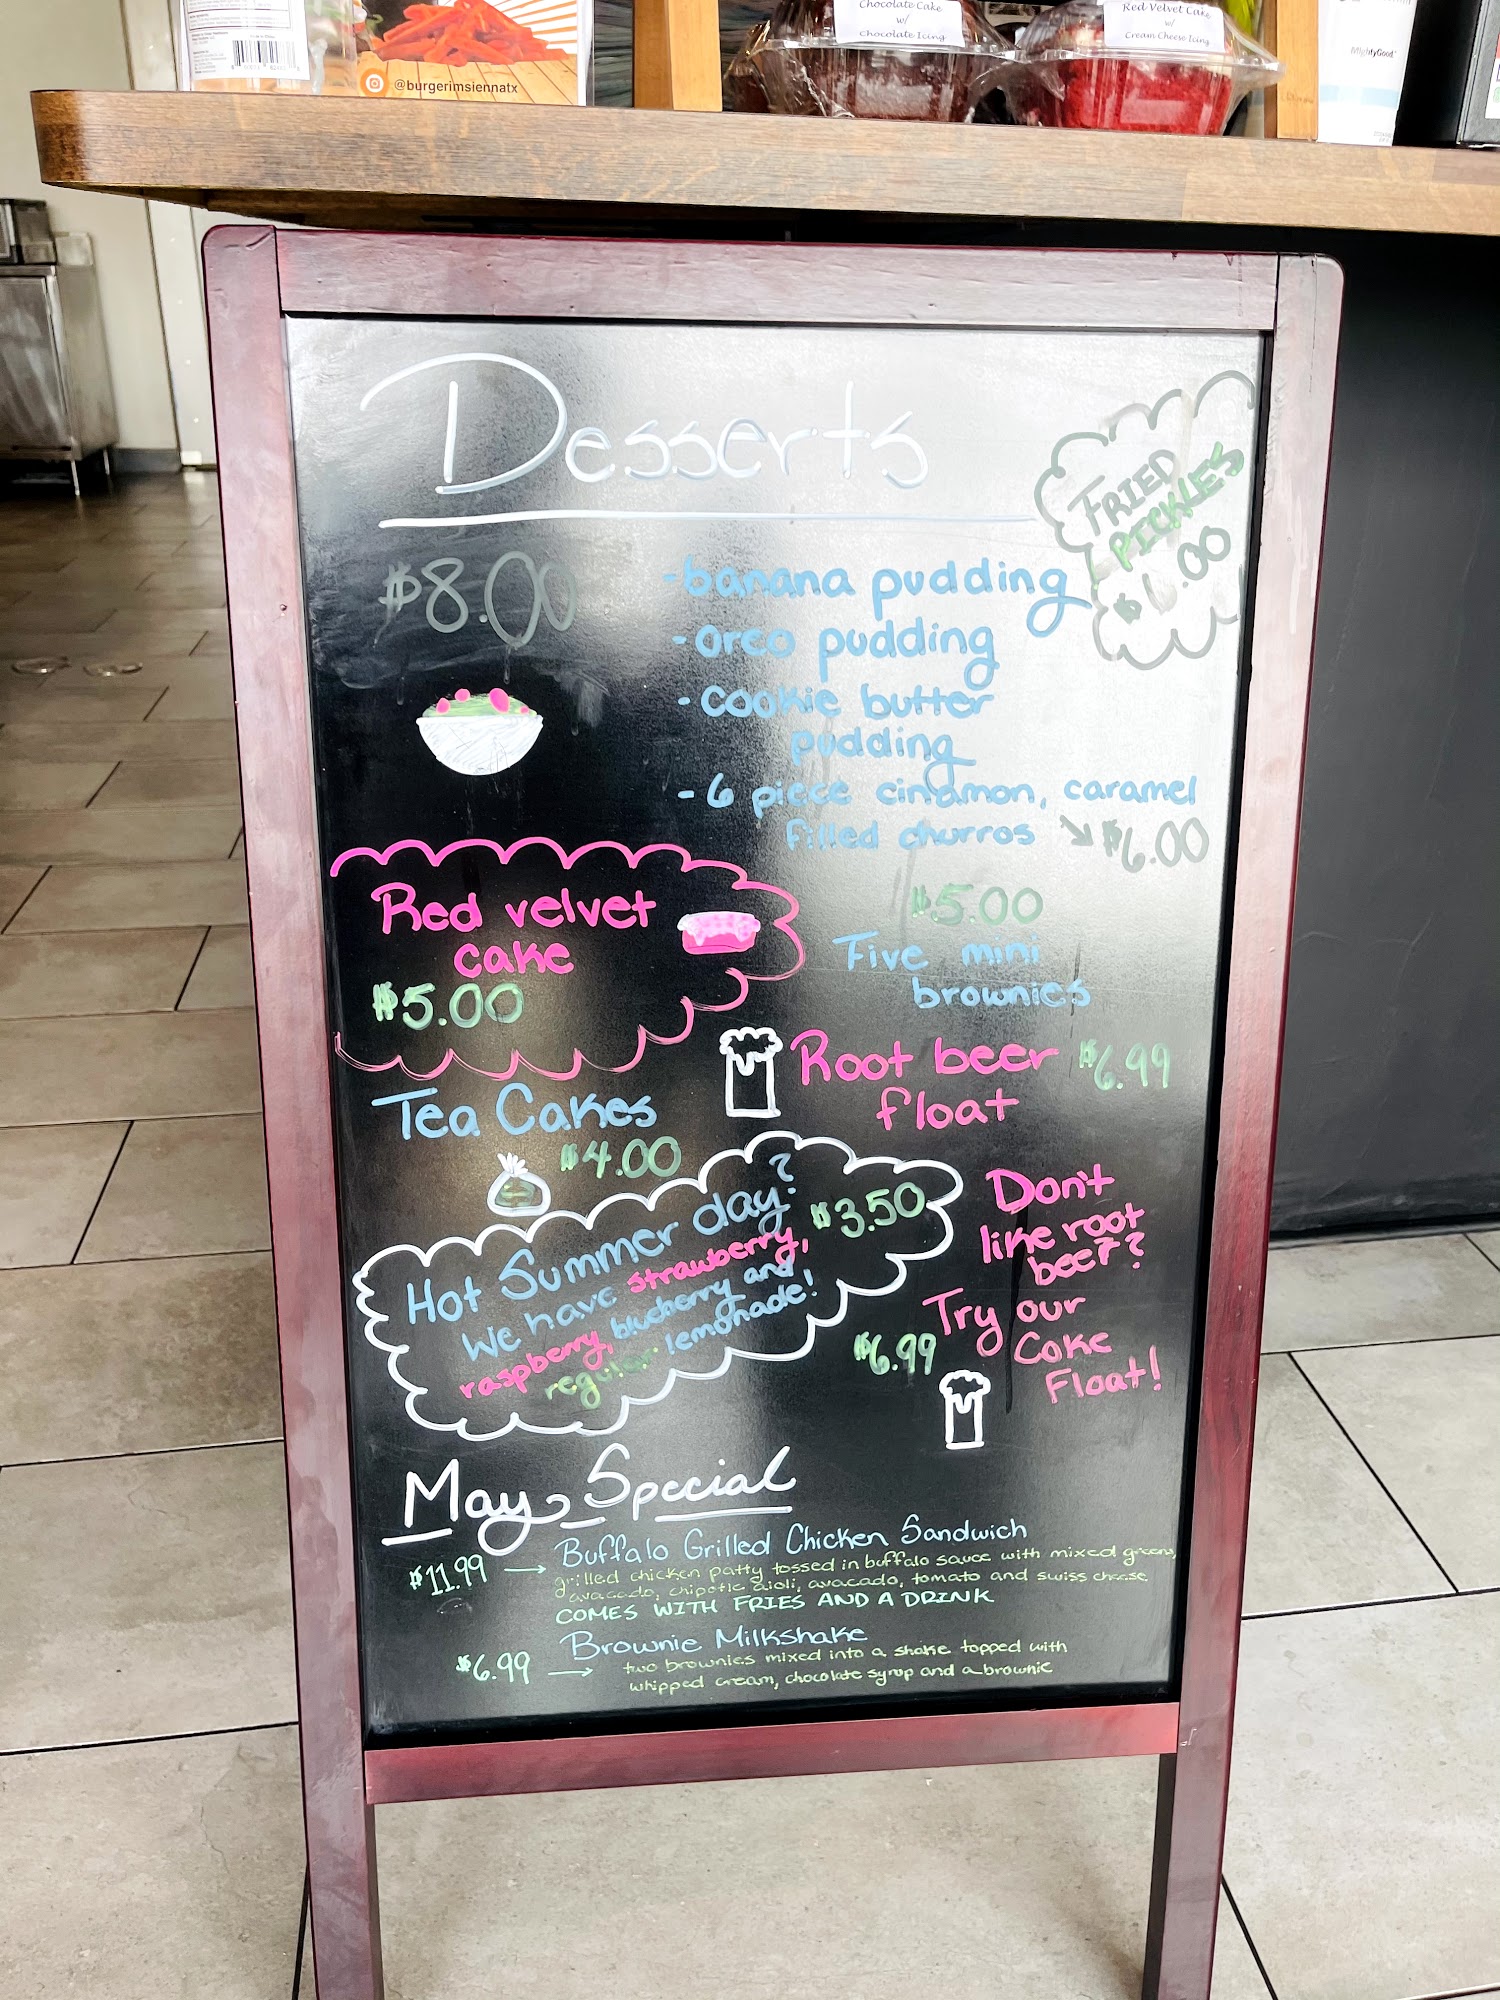 @burgerimsiennatx
Chocolate Cake
w/
Chocolate Icing
Red Velvet Cake
w/
Cream Cheese Icing
MightyGood
Desserts
FRIED
PICKLES
$6.00
$8.00
-banana pudding
-oreo pudding
-cookie butter
pudding
-6 piece cinnamon, caramel
filled churros
$6.00
Red velvet
cake
$5.00
$5.00
Five mini
brownies
Root beer
float
$6.99
Tea Cakes
$4.00
Hot Summer day?
We have strawberry,
raspberry, blueberry and
regular lemonade!
$3.50
Don't
like root
beer?
Try our
Coke
Float!
$6.99
May Special
$11.99
Buffalo Grilled Chicken Sandwich
grilled chicken patty tossed in buffalo sauce with mixed greens,
avacado, chipotle aioli, avacado, tomato and swiss cheese
COMES WITH FRIES AND A DRINK
$6.99
Brownie Milkshake
two brownies mixed into a shake topped with
whipped cream, chocolate syrup and a brownie